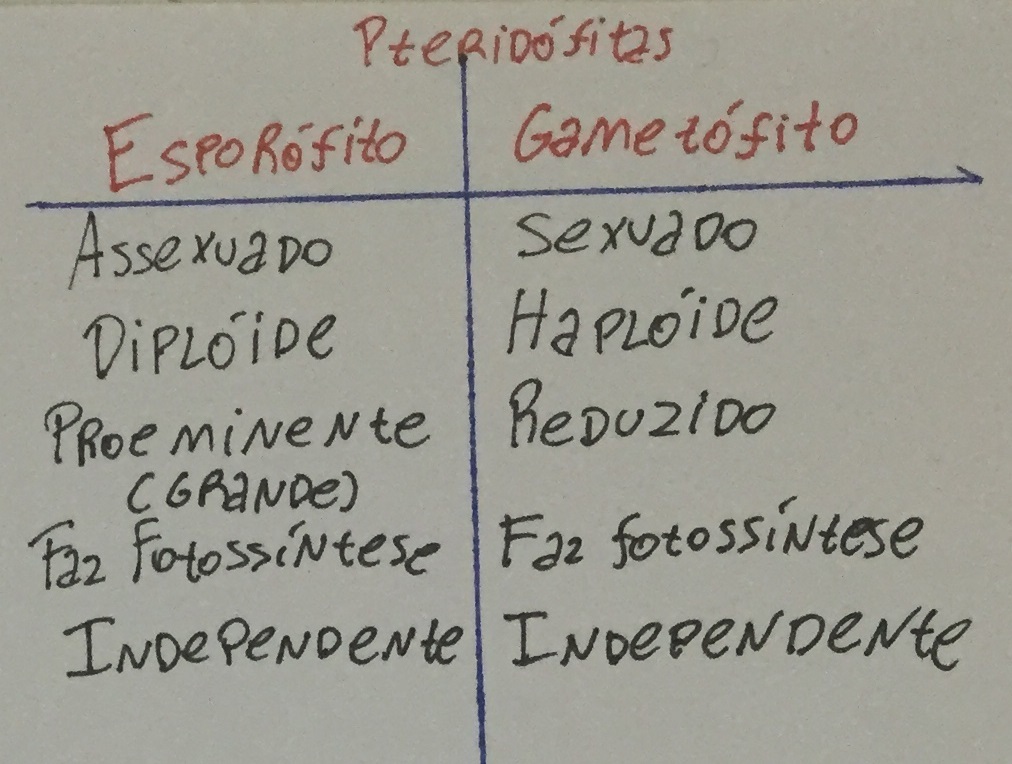 Pteridófitas
Esporófito Gametófito
Assexuado Sexuado
Diplóide Haplóide
Proeminente Reduzido
(Grande)
Faz Fotossíntese Faz fotossíntese
Independente Independente